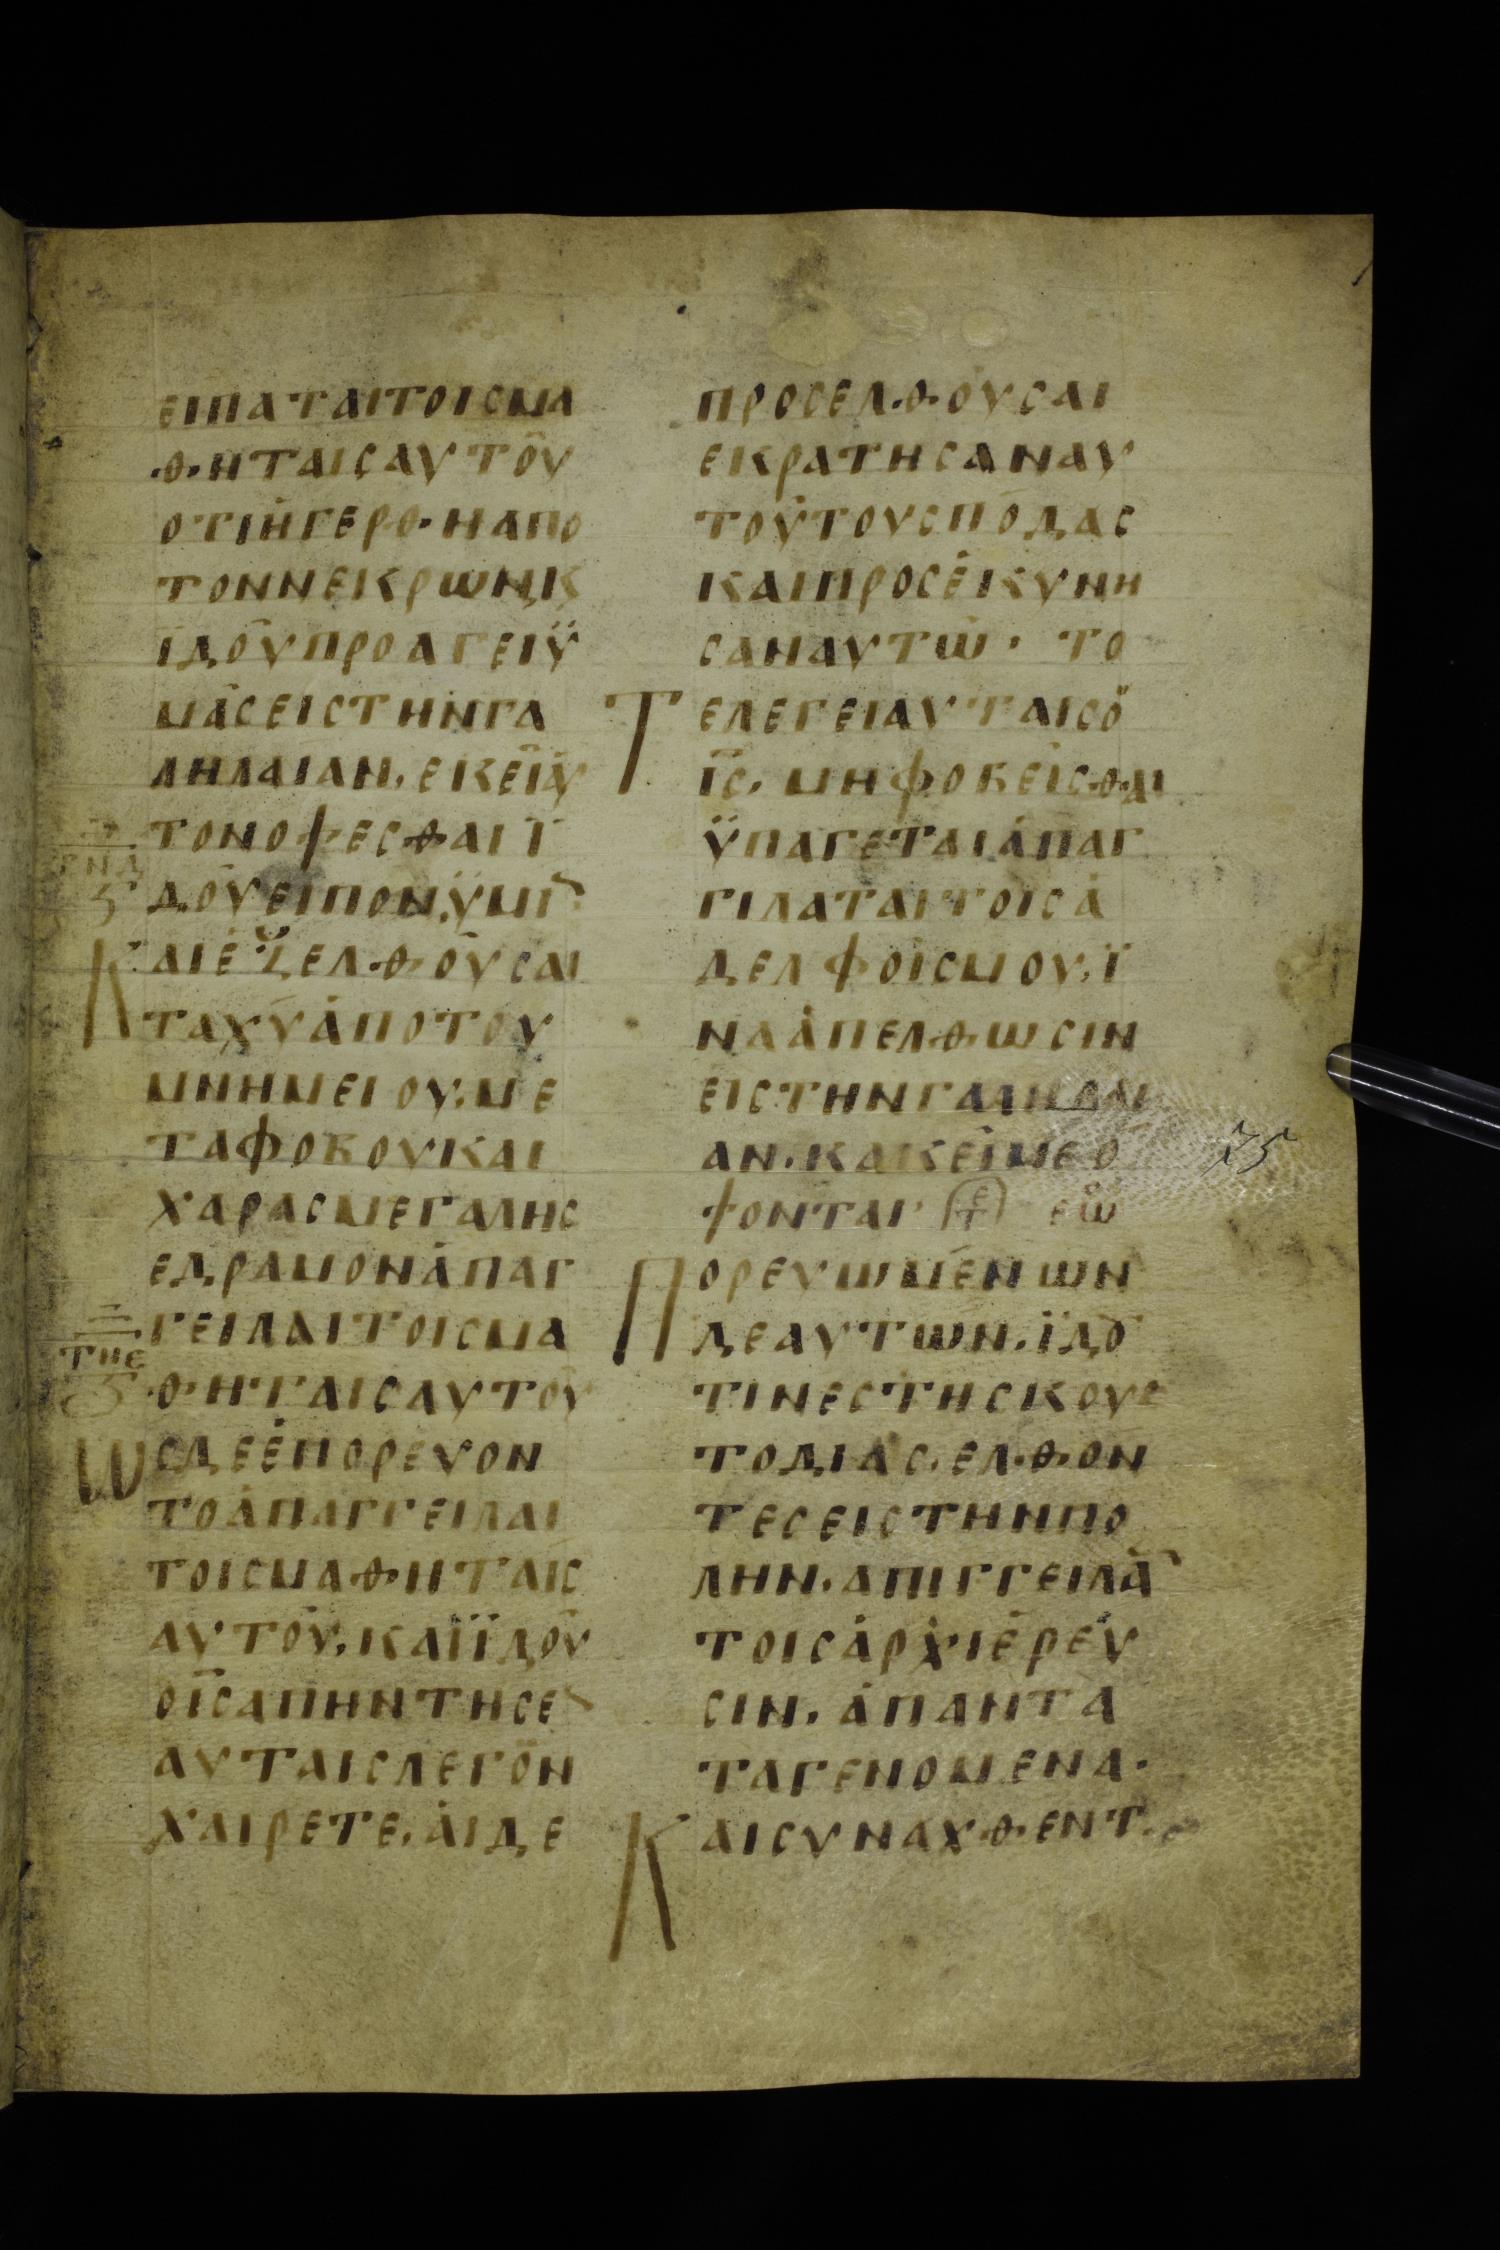 ΕΙΠΑΤΑΙΤΟΙСΜΑ
ΘΗΤΑΙСΑΥΤΟΥ
ΟΤΙΗΓΕΡΘΗΑΠΟ
ΤΟΝΝΕΚΡΩΝ,Κ
ΪΔΟΥΠΡΟΑΓΕΙΫ
ΜΑСΕΙСΤΗΝΓΑ
ΛΗΛΑΙΑΝ,ΕΚΕΙΑΥ
ΤΟΝΟΨΕСΘΑΙΪ
ΡΝΔ
ΔΟΥΕΙΠΟΝ,ΫΜΙ
ΚΑΙΕΞΕΛΘΟΥСΑΙ
ΤΑΧΥΑΠΟΤΟΥ
ΜΝΗΜΕΙΟΥ,ΜΕ
ΤΑΦΟΒΟΥΚΑΙ
ΧΑΡΑСΜΕΓΑΛΗС
ΕΔΡΑΜΟΝΑΠΑΓ
ΓΕΙΛΑΙΤΟΙСΜΑ
ΤΝΕ
ΘΗΤΑΙСΑΥΤΟΥ
ΩСΔΕΕΠΟΡΕΥΟΝ
ΤΟΑΠΑΓΓΕΙΛΑΙ
ΤΟΙСΜΑΘΗΤΑΙС
ΑΥΤΟΥ,ΚΑΙΪΔΟΥ
ΟΙ̅С̅ΑΠΗΝΤΗСΕ
ΑΥΤΑΙСΛΕΓΟΝ
ΧΑΙΡΕΤΕ,ΑΙΔΕ
ΠΡΟСΕΛΘΟΥСΑΙ
ΕΚΡΑΤΗСΑΝΑΥ
ΤΟΥΤΟΥСΠΟΔΑС
ΚΑΙΠΡΟСΕΚΥΝΗ
СΑΝΑΥΤΩ· ΤΟ
ΤΕΛΕΓΕΙΑΥΤΑΙСΟ
Ι̅С̅, ΜΗΦΟΒΕΙСΘΑΙ
ΫΠΑΓΕΤΑΙΑΠΑΓ
ΓΙΛΑΤΑΙΤΟΙСΑ
ΔΕΛΦΟΙСΜΟΥ,Ϊ
ΝΑΑΠΕΛΘΩСΙΝ
ΕΙСΤΗΝΓΑΛΗΛΑΙ
ΑΝ,ΚΑΚΕΙΜΕΟ
75
ΨΟΝΤΑΙ ΕΩ
ΠΟΡΕΥΩΜΕΝΩΝ
ΔΕΑΥΤΩΝ,ΪΔΟ
ΤΙΝΕСΤΗСΚΟΥС
ΤΟΔΙΑС,ΕΛΘΟΝ
ΤΕСΕΙСΤΗΝΠΟ
ΛΗΝ,ΑΠΙΓΓΕΙΛΑ
ΤΟΙСΑΡΧΙΕΡΕΥ
СΙΝ,ΑΠΑΝΤΑ
ΤΑΓΕΝΟΜΕΝΑ·
ΚΑΙСΥΝΑΧΘΕΝΤ